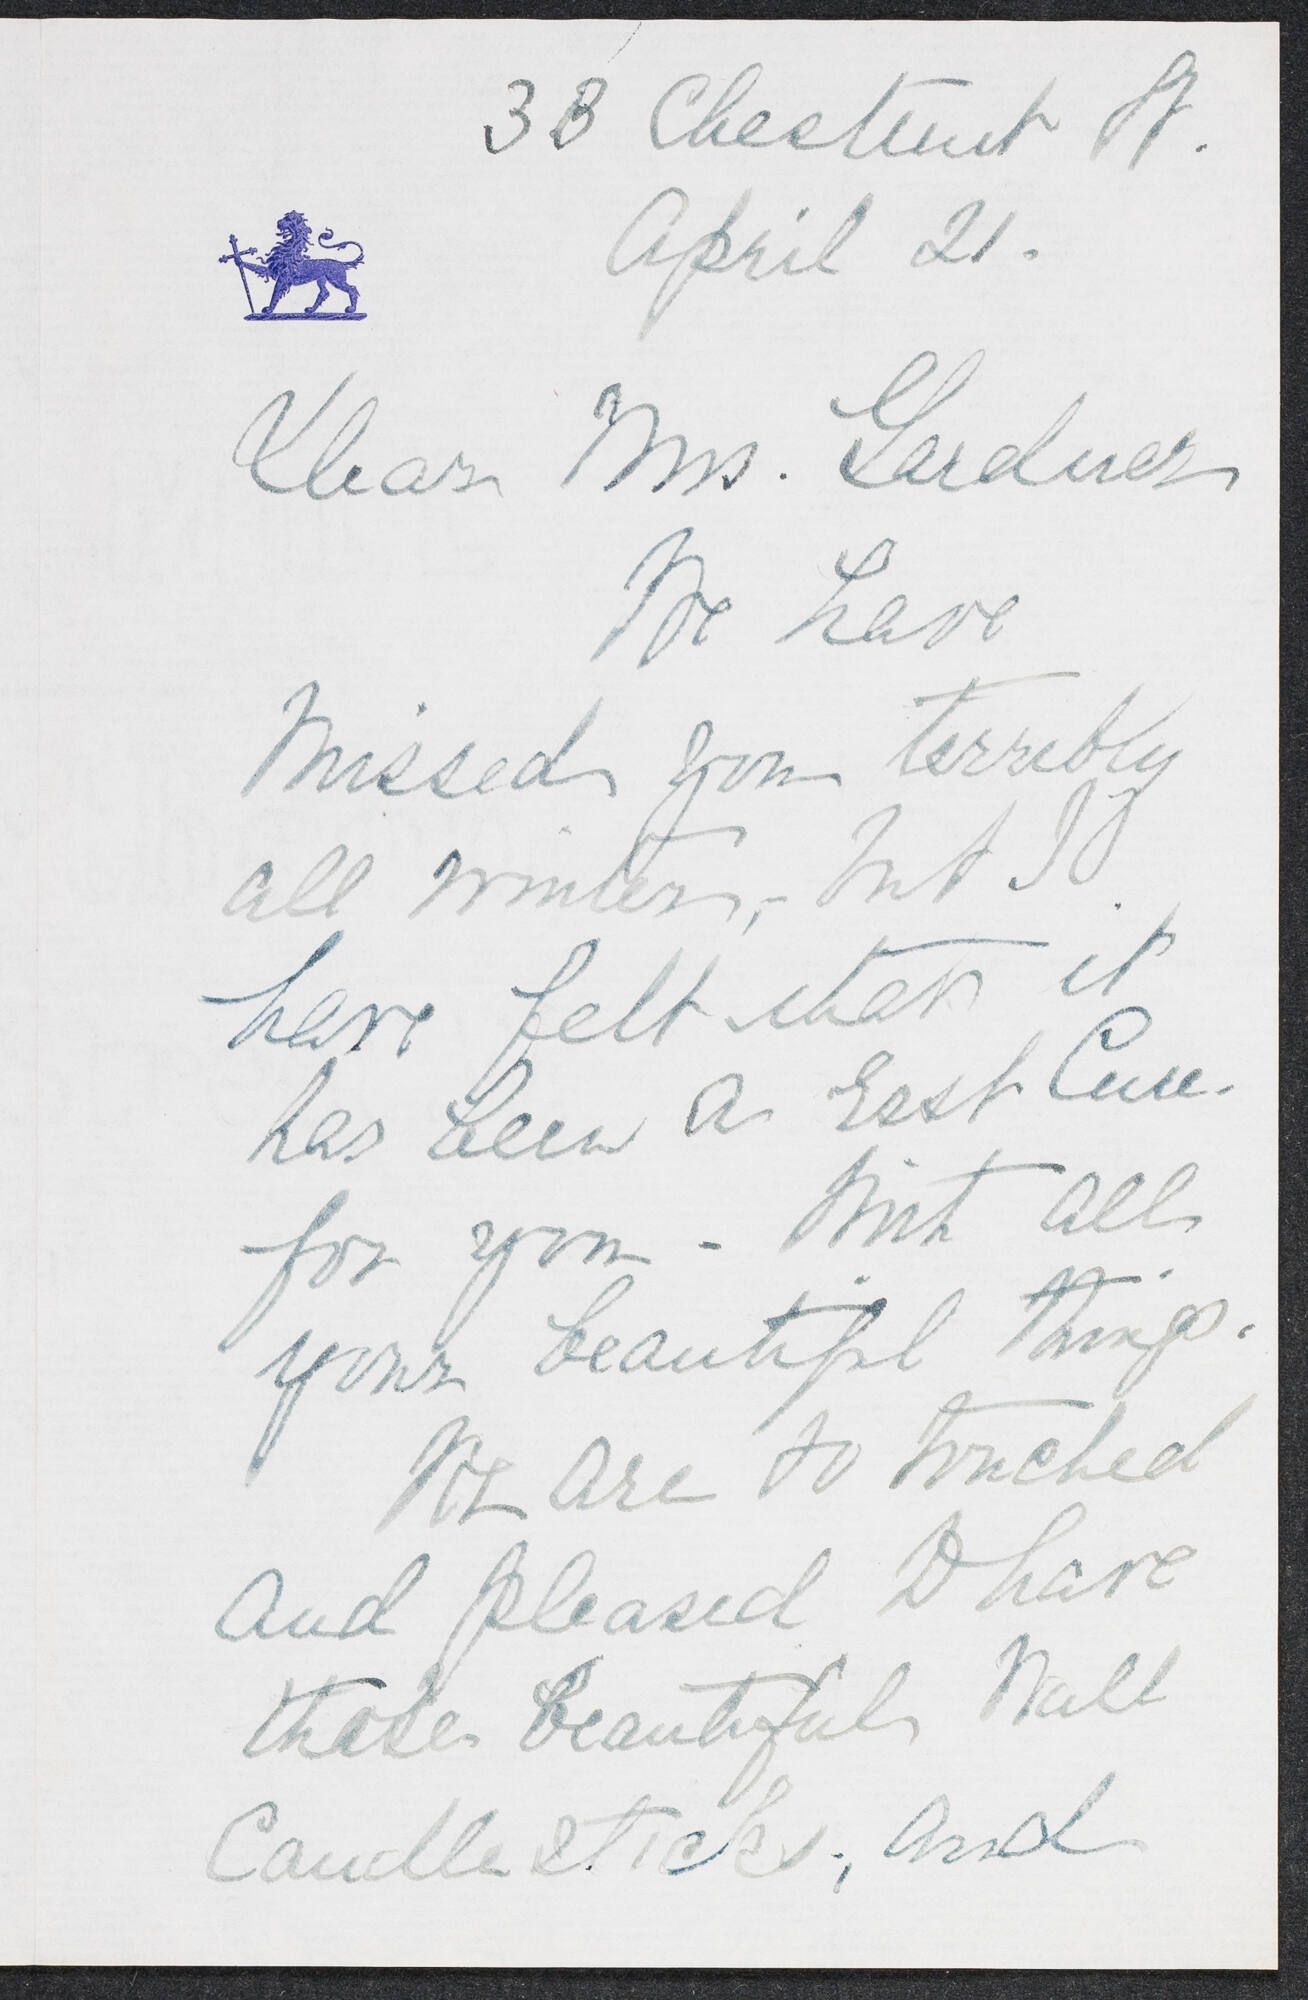 38 Chestnut St.
April 21.
Dear Mrs. Gardner
We have
missed you terribly
all winter, - but I
have felt that it
has been a rest cure
for you - with all
your beautiful things.
We are so touched
and pleased to have
those beautiful wall
candlesticks, and